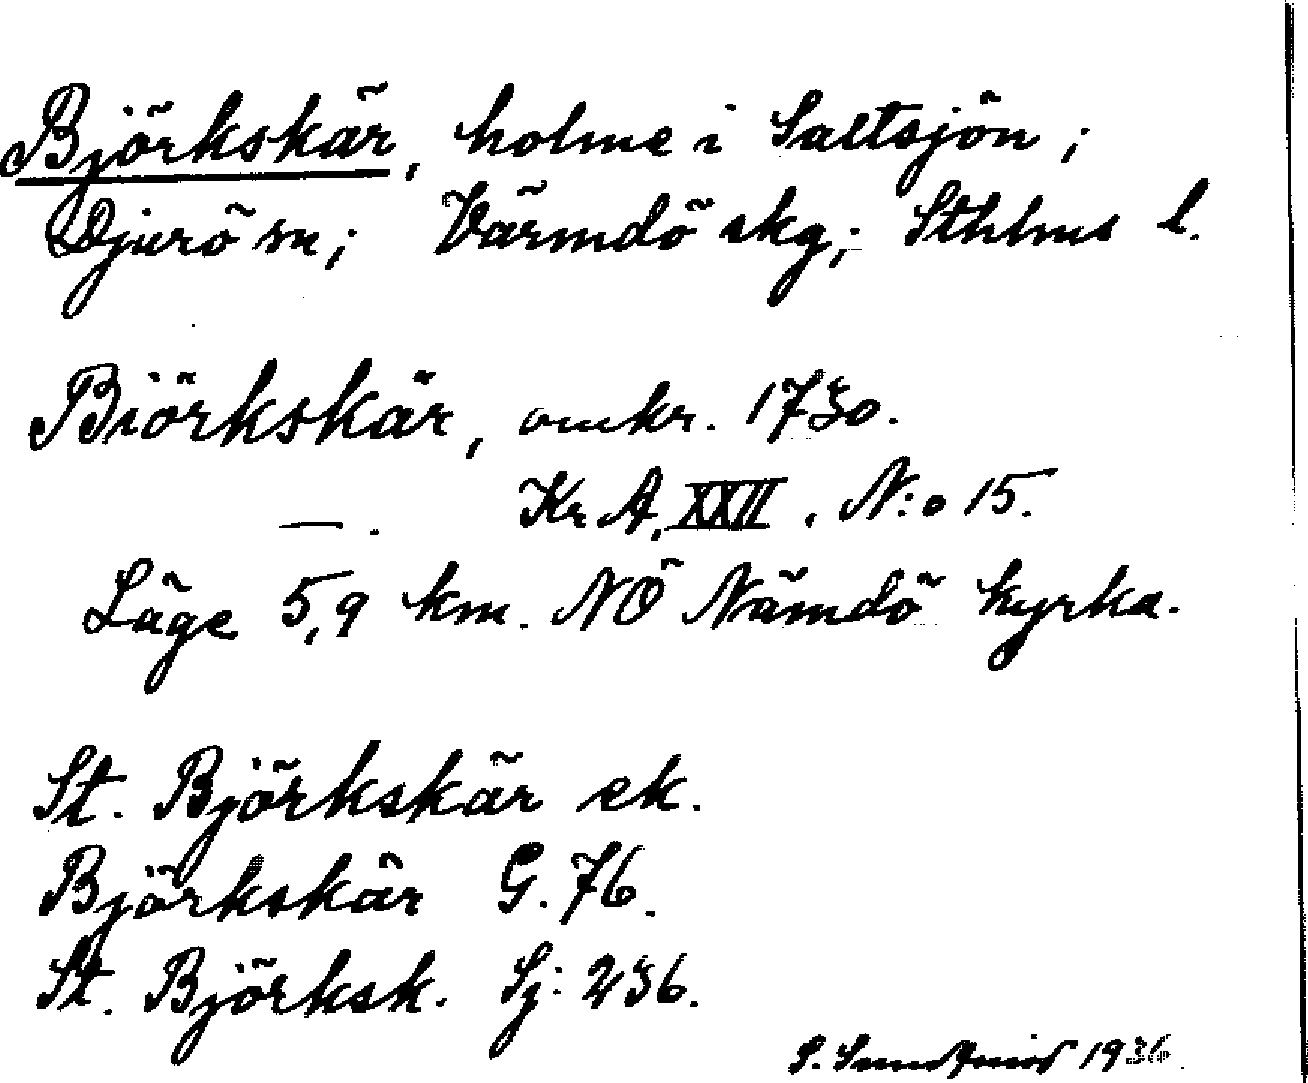 Björkskär, holme i Saltsjön;
Djurö sn; Värmdö skg; Sthlms l.
Biörkskär, omkr. 1730.
—. Kr. A, XXII. N:o 15.
Läge 5,9 km. NÖ Nämdö kyrka.
St. Björkskär ek.
Björkskär G. 76.
St. Björksk. Sj: 236.
S. 1936